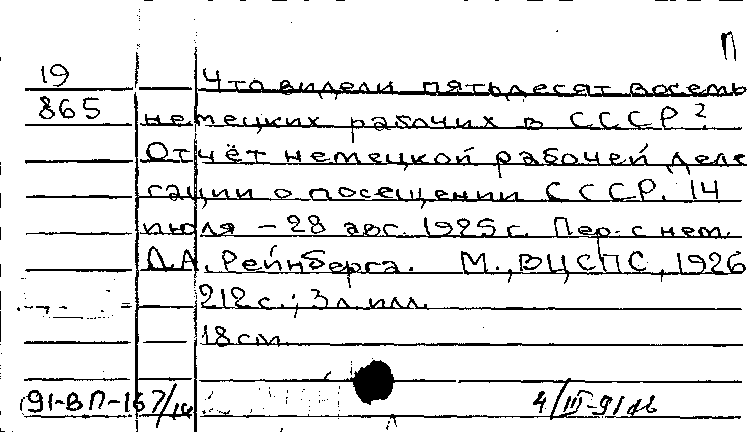 П
19 Что видели пятьдесят восемь
865 немецких рабочих в СССР?
Отчёт немецкой рабочей деле
гации о посещении СССР. 14
июля - 28 авг. 1925 г. Пер. с нем.
Л.А. Рейнберга. М., ВЦСПС, 1926
212 с.; 3 л. илл.
18 см.
91-ВП-167/14
4/III-91